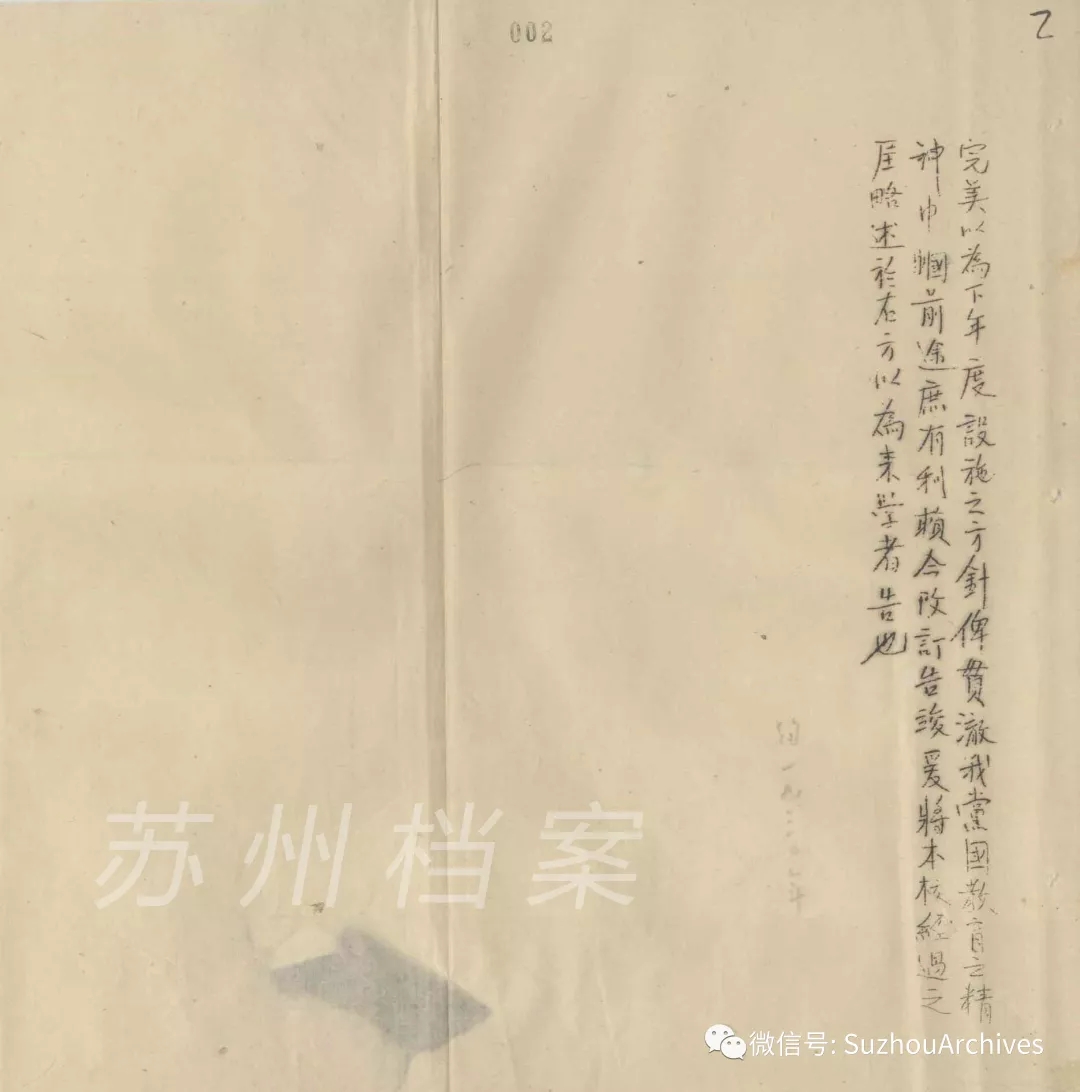 002
2
完美以為下年度設施之方針俾貫澈我黨國教育之精
神巾幗前途庶有利賴今改訂告竣爰將本校經過之
厓略述於左方以為来學者告也
苏州档案
微信号: SuzhouArchives